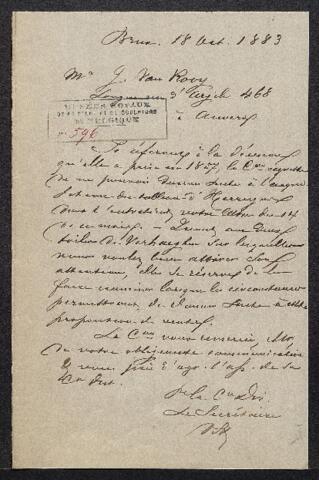 Brux. 18 Oct. 1883
Mr J. Van Rooy
468
à Anvers
MUSÉES ROYAUX
DE PEINTURE ET DE SCULPTURE
DE BELGIQUE
No 596
Se référant à la décision
qu'elle a prise en 1857, la Con regrette
de ne pouvoir donner suite à
du tableau d'Herreyns
dont l'entretient votre lettre du 14
de ce mois. Quant aux deux
toiles de Verhaeghen sur lesquelles
vous voulez bien attirer son
attention, elle se réserve de
faire examiner lorsque les circonstances
permettront de donner suite à cette
proposition de vente.
La Con vous remercie, Mr,
de votre obligeante communication
& vous prie d'agr. l'ass. de sa
Pr la Con
Le Secrétaire